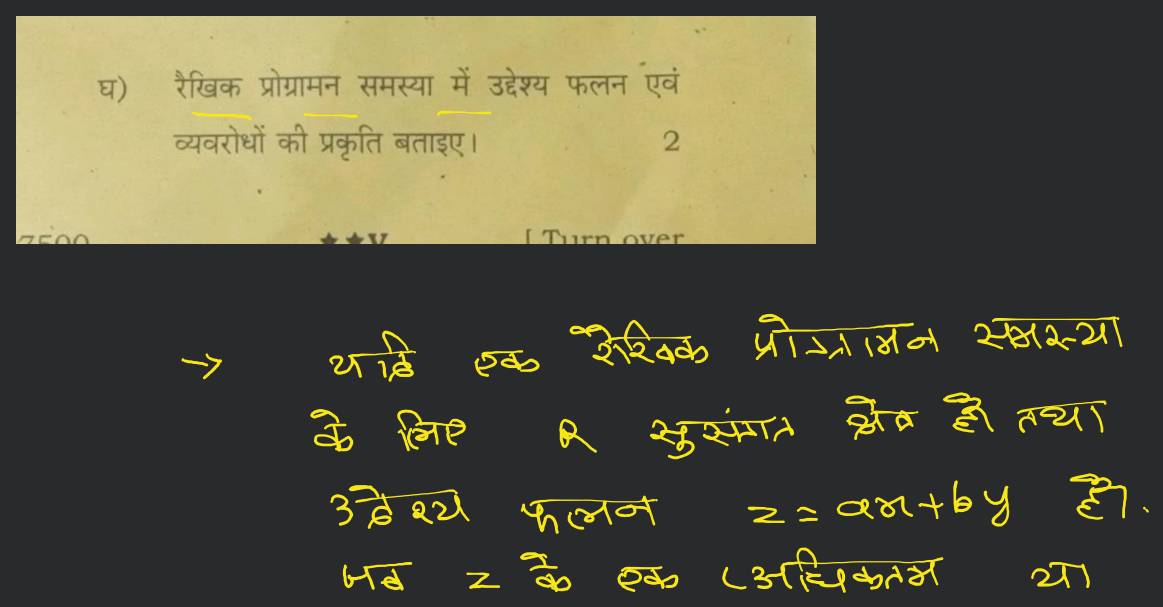 घ) रैखिक प्रोग्रामन समस्या में उद्देश्य फलन एवं
व्यवरोधों की प्रकृति बताइए। 2
[ Turn over
→ यदि एक रैखिक प्रोग्रामन समस्या
के लिए R सुसंगत क्षेत्र हो तथा
उद्देश्य फलन z = ax + by हो.
जब z के एक (अधिकतम या